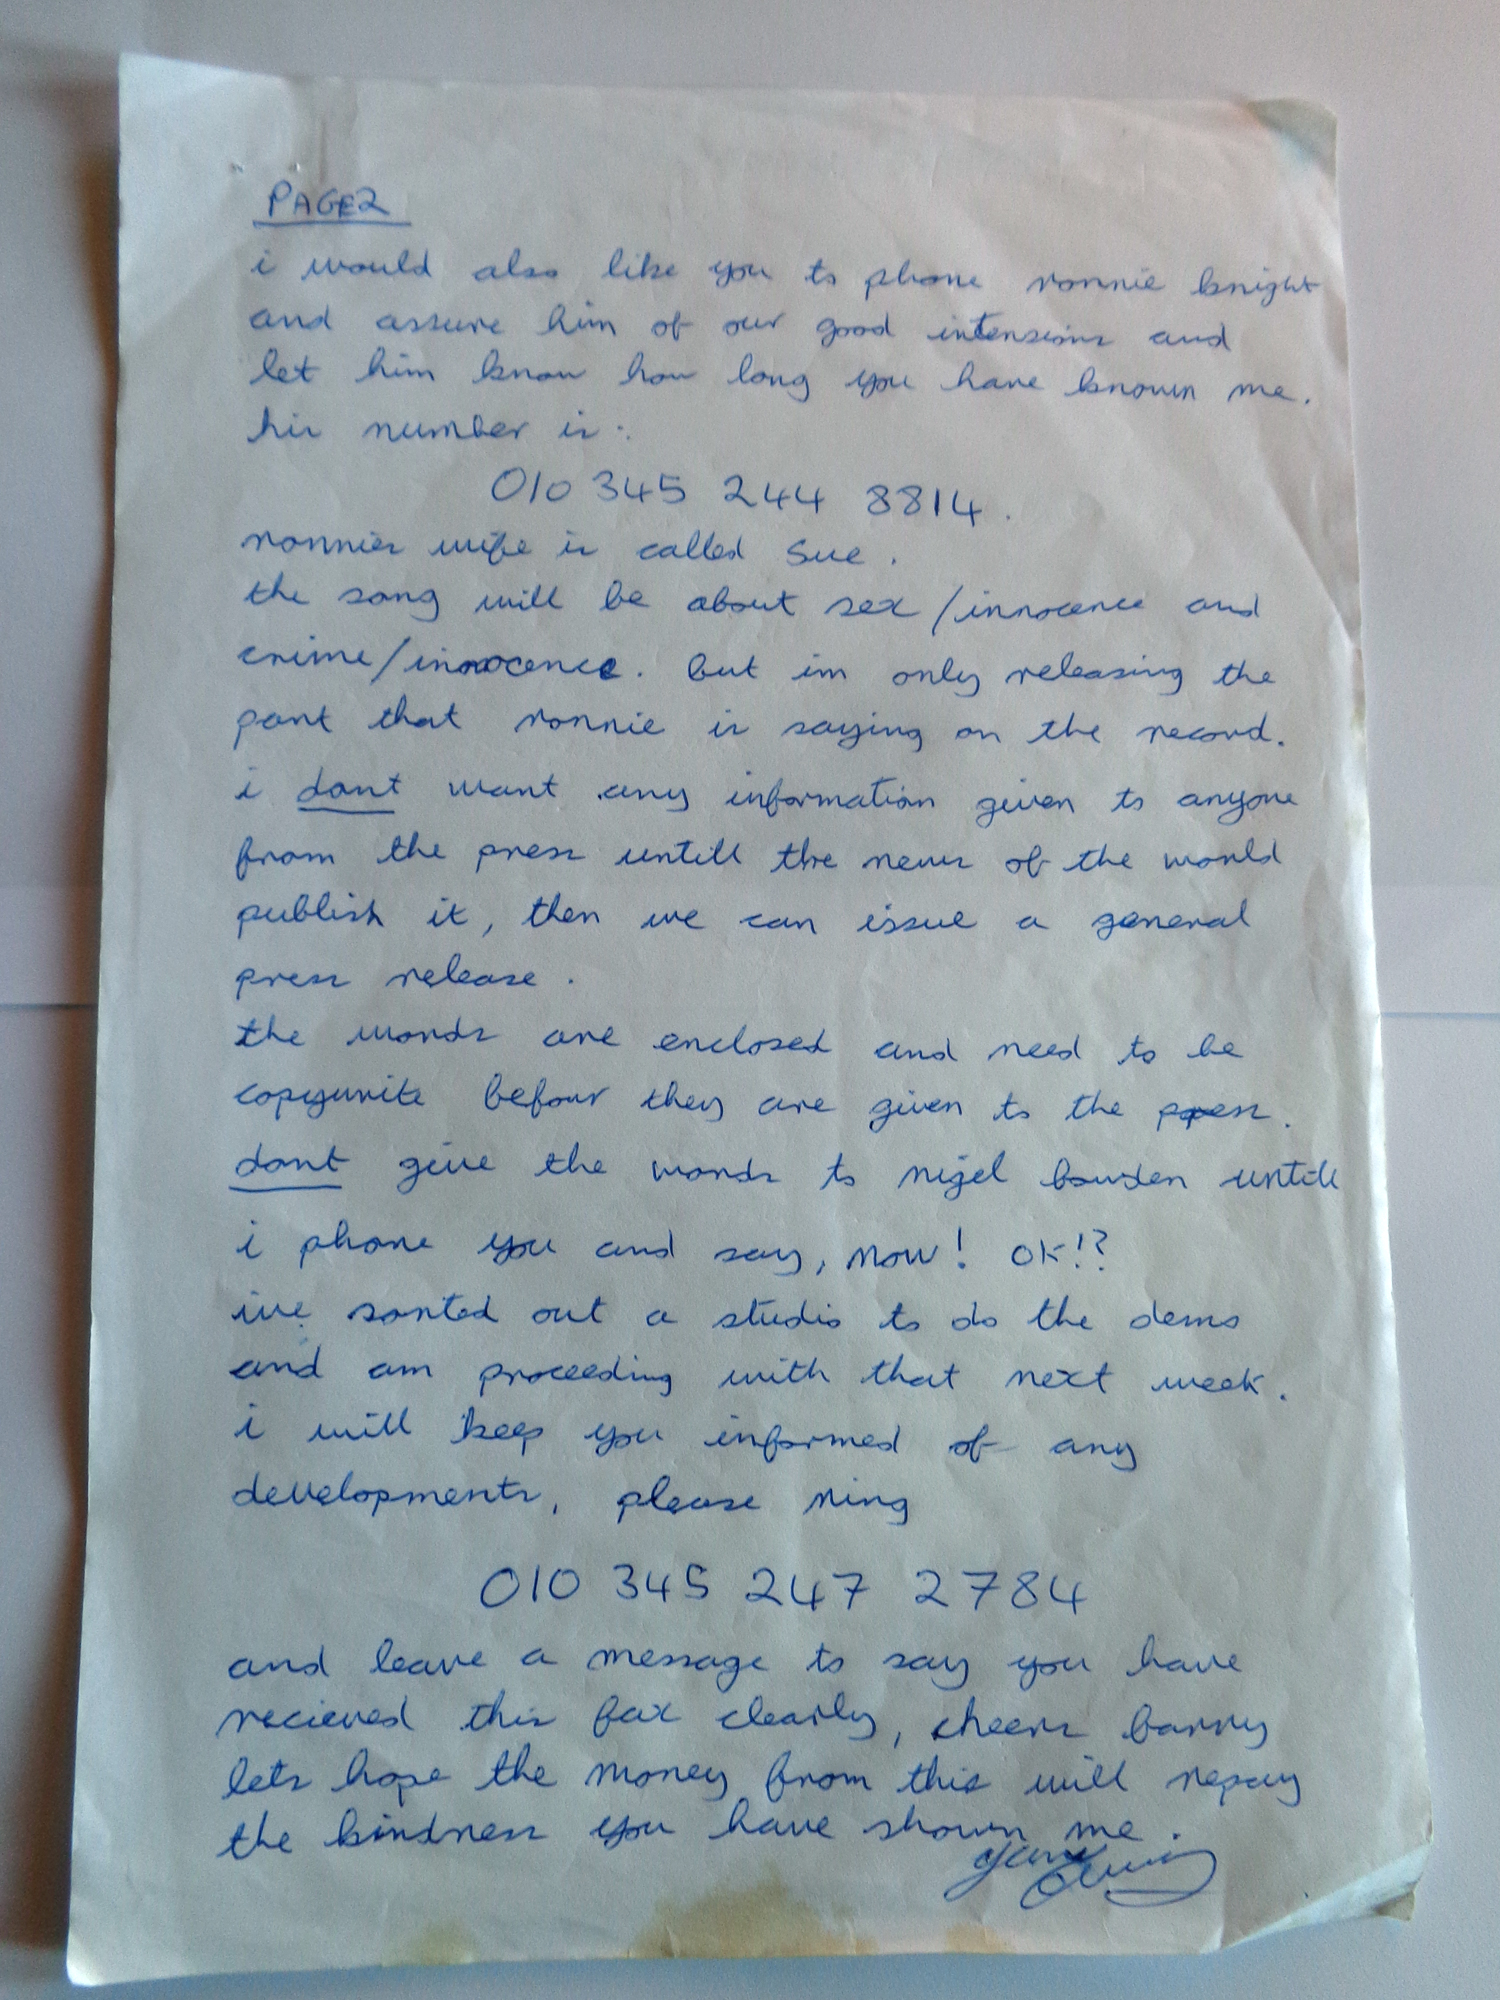 PAGE2
i would also like you to phone ronnie knight
and assure him of our good intensions and
let him know how long you have known me.
his number is:
010 345 244 8814.
ronnies wife is called Sue.
the song will be about sex/innocence and
crime/innocence. but im only releasing the
part that ronnie is saying on the record.
i dont want any information given to anyone
from the press untill the news of the world
publish it, then we can issue a general
press release.
the words are enclosed and need to be
copywrite befour they are given to the press.
dont give the words to nigel bowden untill
i phone you and say, now! OK!?
ive sorted out a studio to do the demo
and am proceeding with that next week.
i will keep you informed of any
developments, please ring
010 345 247 2784
and leave a message to say you have
recieved this fax clearly, cheers barry
lets hope the money from this will repay
the kindness you have shown me.